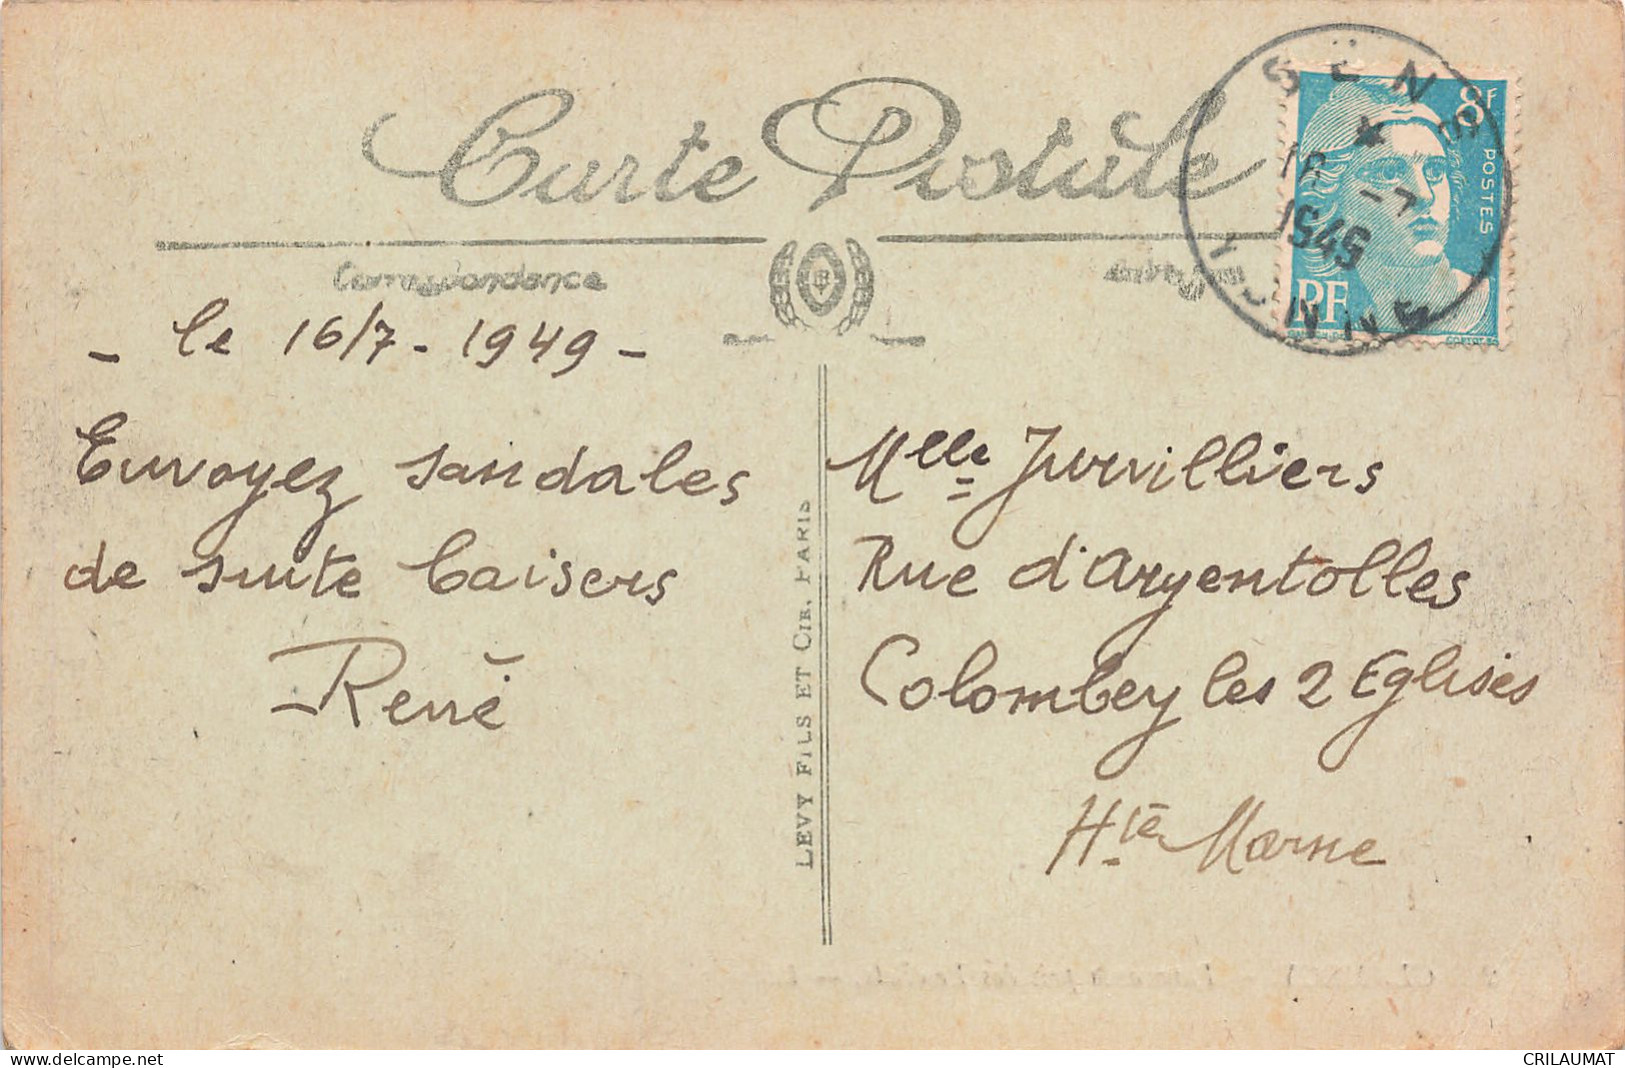 Carte Postale
Correspondance
- le 16/7 - 1949 -
Envoyez sandales
de suite baisers
René
LEVY FILS ET CIE, PARIS
SENS
YONNE
18
-7
1949
8F
POSTES
RF
Mlle Jurvilliers
Rue d'Argentolles
Colombey les 2 Eglises
Hte Marne
delcampe.net
CRILAUMAT